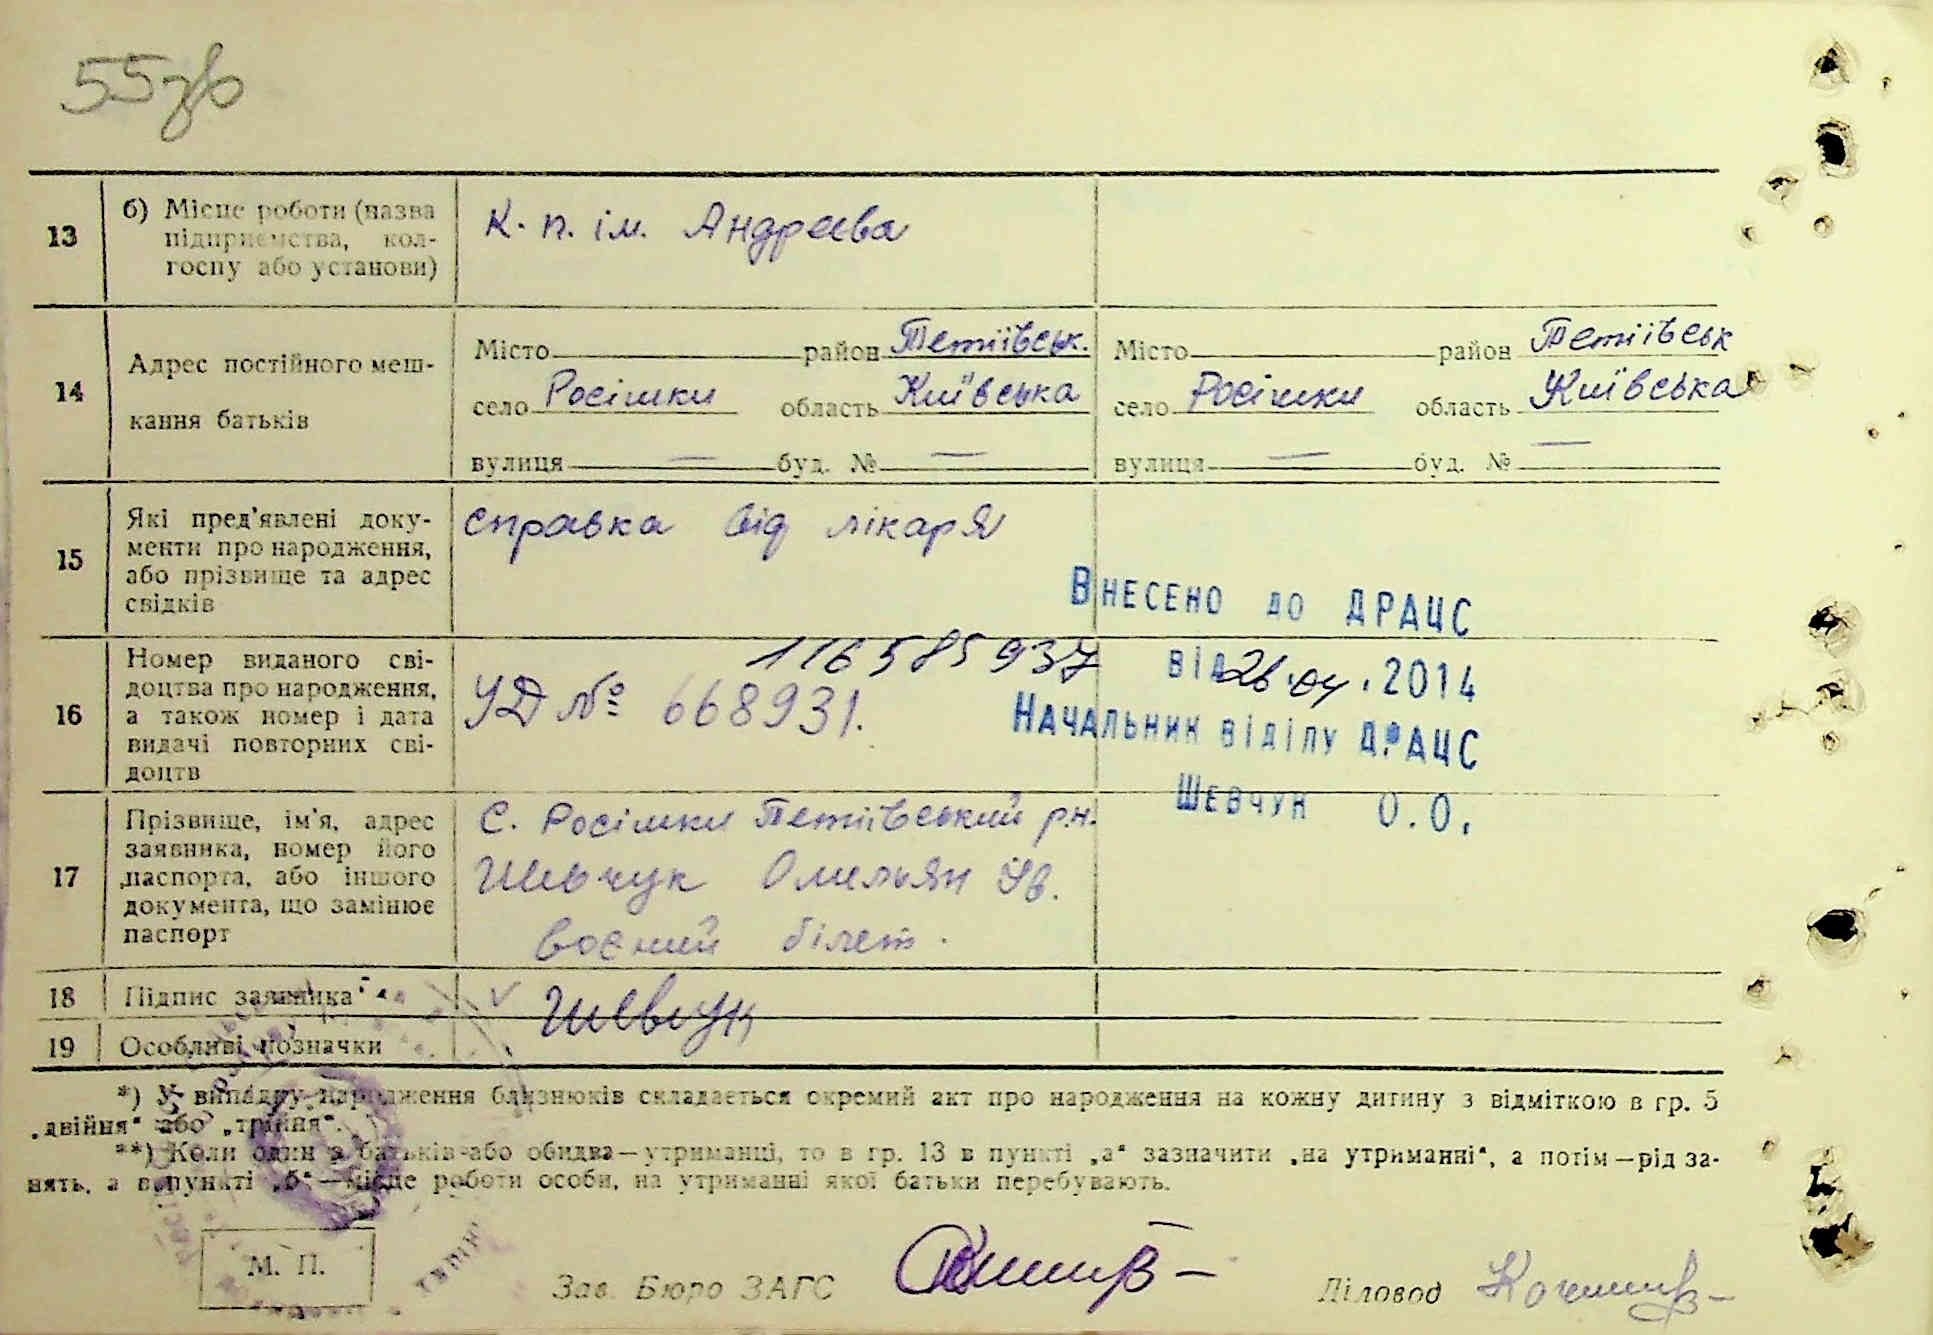 55зв
13 б) Місце роботи (назва
підприємства, кол-
госпу або установи)
К. п. ім. Андрєєва
14 Адрес постійного меш-
кання батьків
Місто район Тетіївськ. Місто район Тетіївськ
село Росішки область Київська село Росішки область Київська
вулиця — буд. № — вулиця — буд. № —
15 Які пред'явлені доку-
менти про народження,
або прізвище та адрес
свідків
справка від лікаря
Внесено до ДРАЦС
від 26.04.2014
Начальник відділу ДРАЦС
Шевчук О.О.
16 Номер виданого сві-
доцтва про народження,
а також номер і дата
видачі повторних сві-
доцтв
116585937
УД № 668931.
17 Прізвище, ім'я, адрес
заявника, номер його
паспорта, або іншого
документа, що замінює
паспорт
с. Росішки Тетіївський р.н.
Шевчук Омельян Ів.
воєний білет.
18 Підпис заявника
Шевчук
19 Особливі позначки
*) У випадку народження близнюків складається окремий акт про народження на кожну дитину з відміткою в гр. 5
„двійня“ або „трійня“.
**) Коли один з батьків або обидва—утриманці, то в гр. 13 в пункті „а“ зазначити „на утриманні“, а потім—рід за-
нять, а в пункті „б“—місце роботи особи, на утриманні якої батьки перебувають.
М. П.
Зав. Бюро ЗАГС
Діловод